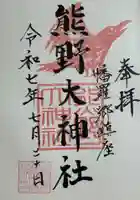 奉拝
幡羅郷鎮座
熊野大神社
令和七年七月二十日